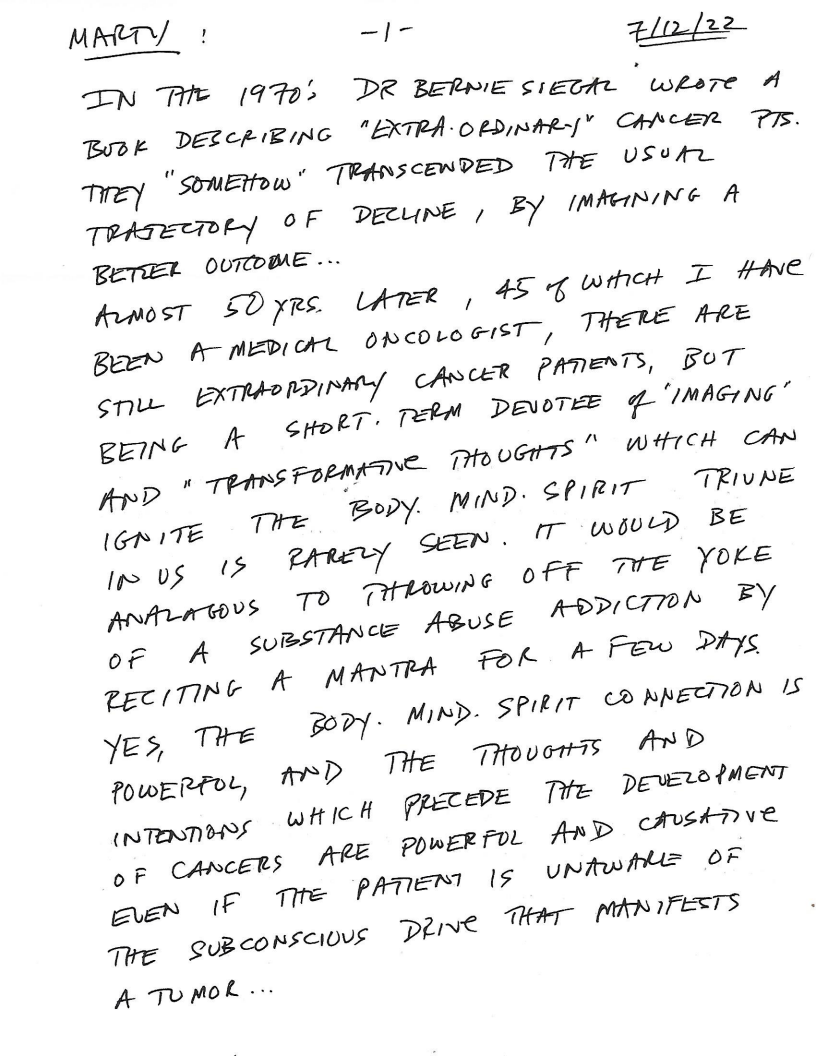 MARTY : -1- 7/12/22
IN THE 1970's DR BERNIE SIEGAL WROTE A
BOOK DESCRIBING "EXTRA-ORDINARY" CANCER PTS.
THEY "SOMEHOW" TRANSCENDED THE USUAL
TRAJECTORY OF DECLINE, BY IMAGINING A
BETTER OUTCOME...
ALMOST 50 YRS. LATER, 45 of WHICH I HAVE
BEEN A MEDICAL ONCOLOGIST, THERE ARE
STILL EXTRAORDINARY CANCER PATIENTS, BUT
BEING A SHORT-TERM DEVOTEE of 'IMAGING'
AND "TRANSFORMATIVE THOUGHTS" WHICH CAN
IGNITE THE BODY. MIND. SPIRIT TRIUNE
IN US IS RARELY SEEN. IT WOULD BE
ANALAGOUS TO THROWING OFF THE YOKE
OF A SUBSTANCE ABUSE ADDICTION BY
RECITING A MANTRA FOR A FEW DAYS.
YES, THE BODY. MIND. SPIRIT CONNECTION IS
POWERFUL, AND THE THOUGHTS AND
INTENTIONS WHICH PRECEDE THE DEVELOPMENT
OF CANCERS ARE POWERFUL AND CAUSATIVE
EVEN IF THE PATIENT IS UNAWARE OF
THE SUBCONSCIOUS DRIVE THAT MANIFESTS
A TUMOR...